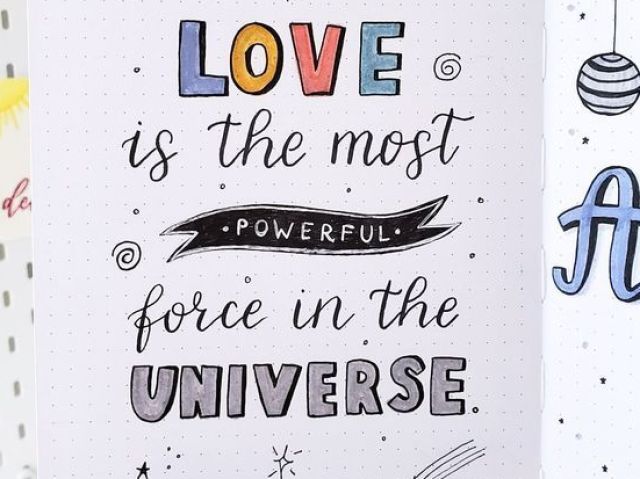 LOVE
is the most
·POWERFUL·
force in the
UNIVERSE.
A